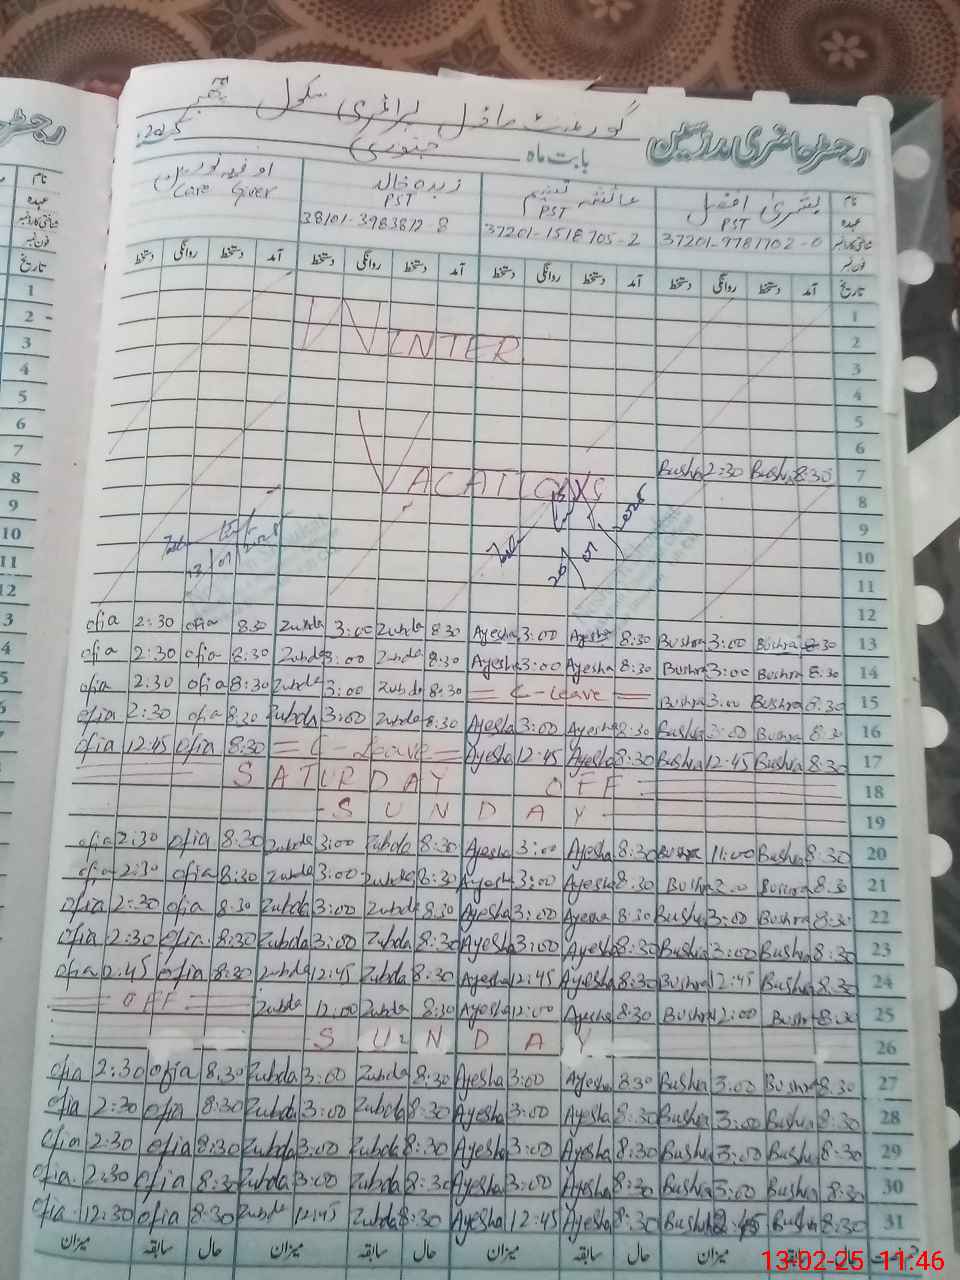 گورنمنٹ ماڈل پرائمری سکول
رجسٹر حاضری مدرسین بابت ماہ جنوری
نام بشریٰ افضل عائشہ تبسم زبدہ خالد
عہدہ PST PST PST Care Giver
شناختی کارڈ نمبر 37201-9781702-0 37201-1518705-2 38101-3983812-8
فون نمبر
تاریخ آمد دستخط روانگی دستخط آمد دستخط روانگی دستخط آمد دستخط روانگی دستخط آمد دستخط روانگی دستخط
1
2
WINTER 3
4
5
6
Bushra 2:30 Bushra 8:30 7
VACATIONS 8
9
10
11
12
ofia 2:30 ofia 8:30 Zubda 3:00 Zubda 8:30 Ayesha 3:00 Ayesha 8:30 Bushra 3:00 Bushra 8:30 13
ofia 2:30 ofia 8:30 Zubda 3:00 Zubda 8:30 Ayesha 3:00 Ayesha 8:30 Bushra 3:00 Bushra 8:30 14
ofia 2:30 ofia 8:30 Zubda 3:00 Zubda 8:30 = C-Leave = Bushra 3:00 Bushra 8:30 15
ofia 2:30 ofia 8:30 Zubda 3:00 Zubda 8:30 Ayesha 3:00 Ayesha 8:30 Bushra 3:00 Bushra 8:30 16
ofia 12:45 ofia 8:30 = C-Leave = Ayesha 12:45 Ayesha 8:30 Bushra 12:45 Bushra 8:30 17
SATURDAY OFF 18
SUNDAY 19
ofia 2:30 ofia 8:30 Zubda 3:00 Zubda 8:30 Ayesha 3:00 Ayesha 8:30 Bushra 11:00 Bushra 8:30 20
ofia 2:30 ofia 8:30 Zubda 3:00 Zubda 8:30 Ayesha 3:00 Ayesha 8:30 Bushra 3:00 Bushra 8:30 21
ofia 2:30 ofia 8:30 Zubda 3:00 Zubda 8:30 Ayesha 3:00 Ayesha 8:30 Bushra 3:00 Bushra 8:30 22
ofia 2:30 ofia 8:30 Zubda 3:00 Zubda 8:30 Ayesha 3:00 Ayesha 8:30 Bushra 3:00 Bushra 8:30 23
ofia 2:45 ofia 8:30 Zubda 12:45 Zubda 8:30 Ayesha 12:45 Ayesha 8:30 Bushra 12:45 Bushra 8:30 24
OFF Zubda 12:00 Zubda 8:30 Ayesha 12:00 Ayesha 8:30 Bushra 12:00 Bushra 8:30 25
SUNDAY 26
ofia 2:30 ofia 8:30 Zubda 3:00 Zubda 8:30 Ayesha 3:00 Ayesha 8:30 Bushra 3:00 Bushra 8:30 27
ofia 2:30 ofia 8:30 Zubda 3:00 Zubda 8:30 Ayesha 3:00 Ayesha 8:30 Bushra 3:00 Bushra 8:30 28
ofia 2:30 ofia 8:30 Zubda 3:00 Zubda 8:30 Ayesha 3:00 Ayesha 8:30 Bushra 3:00 Bushra 8:30 29
ofia 2:30 ofia 8:30 Zubda 3:00 Zubda 8:30 Ayesha 3:00 Ayesha 8:30 Bushra 3:00 Bushra 8:30 30
ofia 12:30 ofia 8:30 Zubda 12:45 Zubda 8:30 Ayesha 12:45 Ayesha 8:30 Bushra 2:45 Bushra 8:30 31
حال سابقہ میزان حال سابقہ میزان حال سابقہ میزان حال سابقہ میزان
13-02-25 11:46